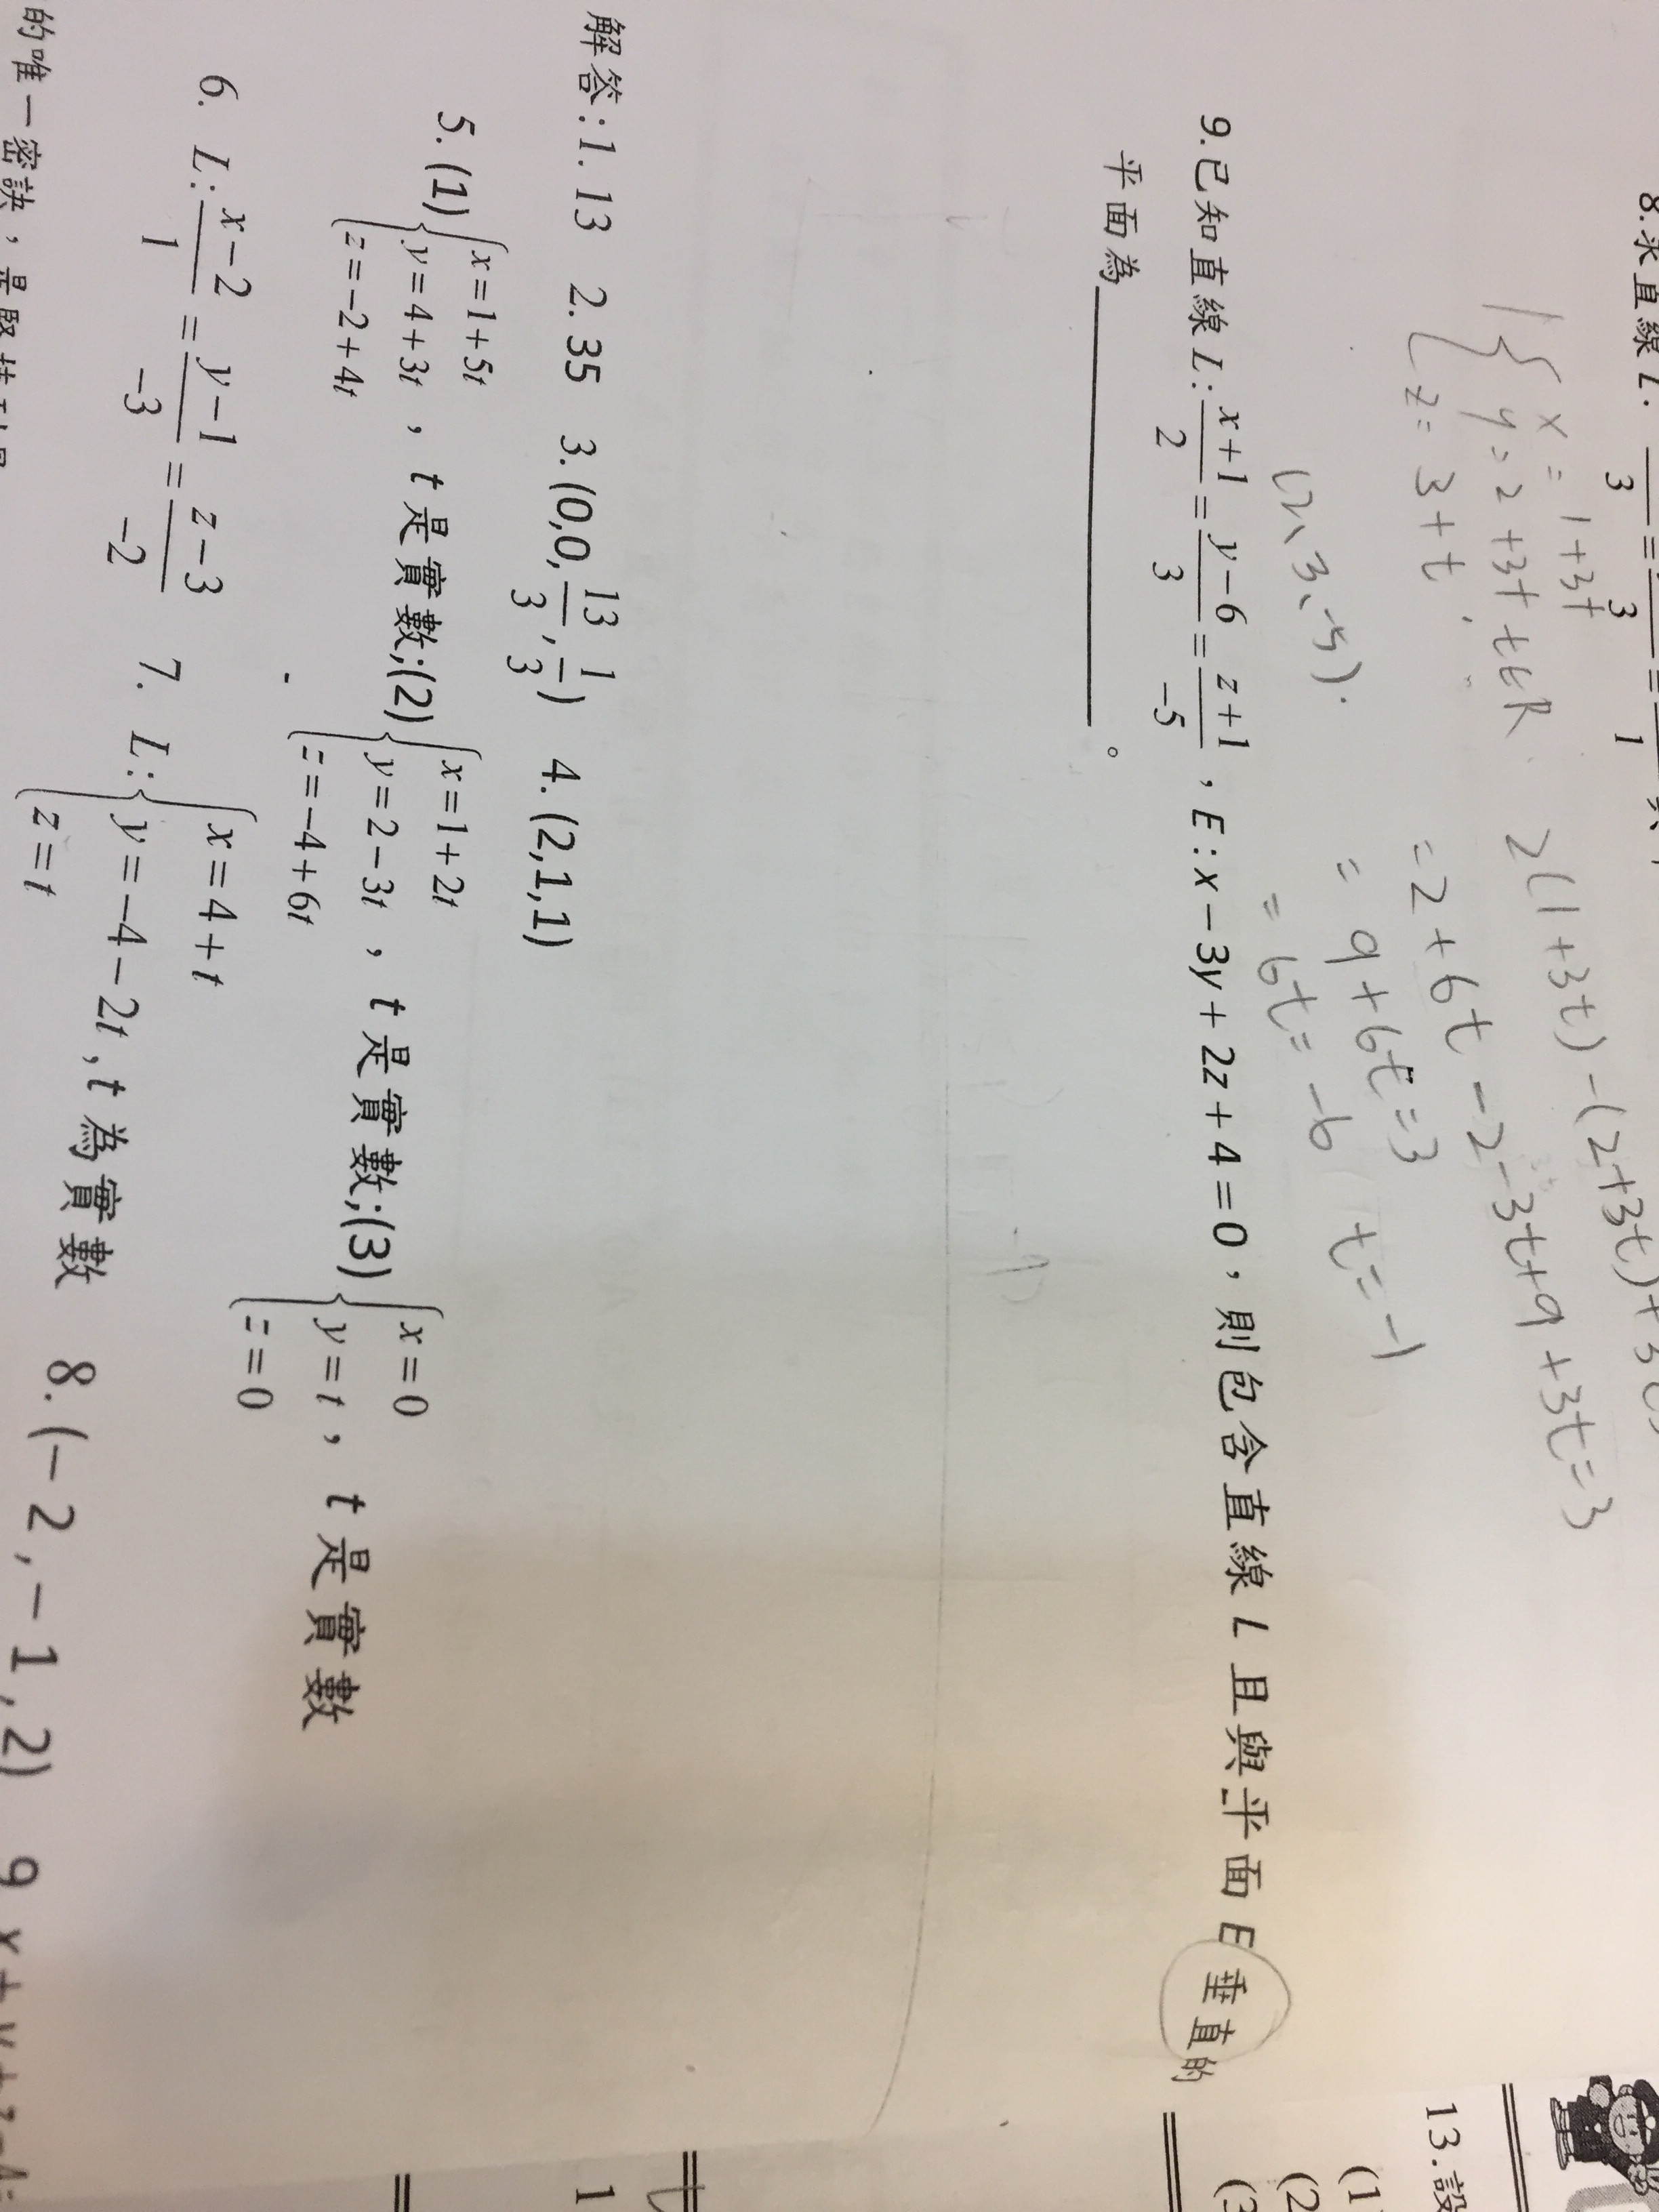 8.求直線 L:
3 = 3 = 1
{ x = 1+3t
y = 2+3t t∈R
z = 3+t
2(1+3t)-(2+3t)+3(
=2+6t-2-3t+9+3t=3
= 9+6t=3
= 6t=-6 t=-1
(2、3、-5).
9.已知直線 L: \frac{x+1}{2} = \frac{y-6}{3} = \frac{z+1}{-5} , E: x-3y+2z+4=0 , 則包含直線 L 且與平面 E 垂直的
平面為 ________ 。
解答:1. 13 2. 35 3. (0,0,\frac{13}{3},\frac{1}{3}) 4. (2,1,1)
5. (1) { x=1+5t
y=4+3t , t 是實數;(2)
z=-2+4t
{ x=1+2t
y=2-3t , t 是實數;(3)
z=-4+6t
{ x=0
y=t , t 是實數
z=0
6. L: \frac{x-2}{1} = \frac{y-1}{-3} = \frac{z-3}{-2} 7. L: { x=4+t
y=-4-2t , t 為實數
z=t
8. (-2,-1,2) 9
的唯一密訣,是堅
13.設
(1
(2
(3
1